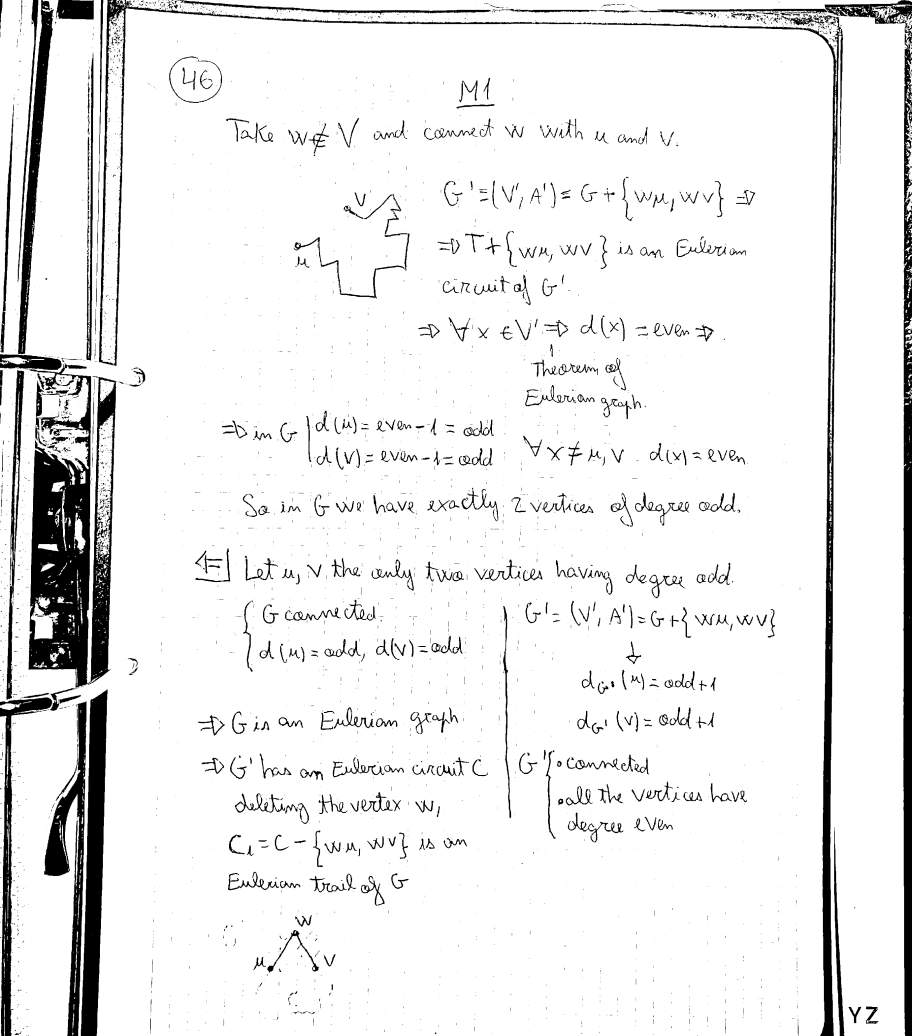 46
M1
Take w∉V and connect w with u and v.
v
u
G'=(V', A')=G+{wu, wv} ⇒
⇒ T+{wu, wv} is an Eulerian
circuit of G'.
⇒ ∀x ∈V' ⇒ d(x) = even ⇒
Theorem of
Eulerian graph.
⇒ in G | d(u)= even-1 = odd
d(v)= even-1=odd ∀x≠u,v d(x)= even
So in G we have exactly 2 vertices of degree odd.
⇐ Let u, v the only two vertices having degree odd.
{ G connected.
d(u)=odd, d(v)=odd
⇒ G is an Eulerian graph
⇒ G' has an Eulerian circuit C
deleting the vertex w,
C₁=C-{wu, wv} is an
Eulerian trail of G
G'=(V', A')=G+{wu, wv}
↓
d_G'(u)=odd+1
d_G'(v)=odd+1
G' { • connected
• all the vertices have
degree even
w
u v
YZ